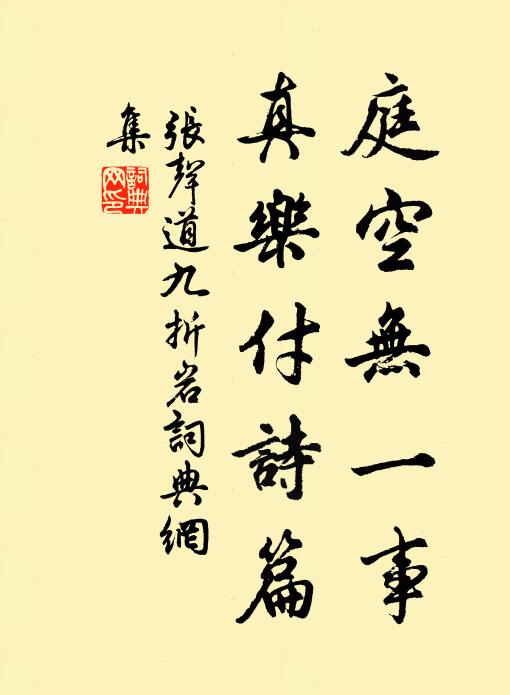 庭空無一事
真樂付詩篇
張聲道九折岩詞典網
集
詞典网印